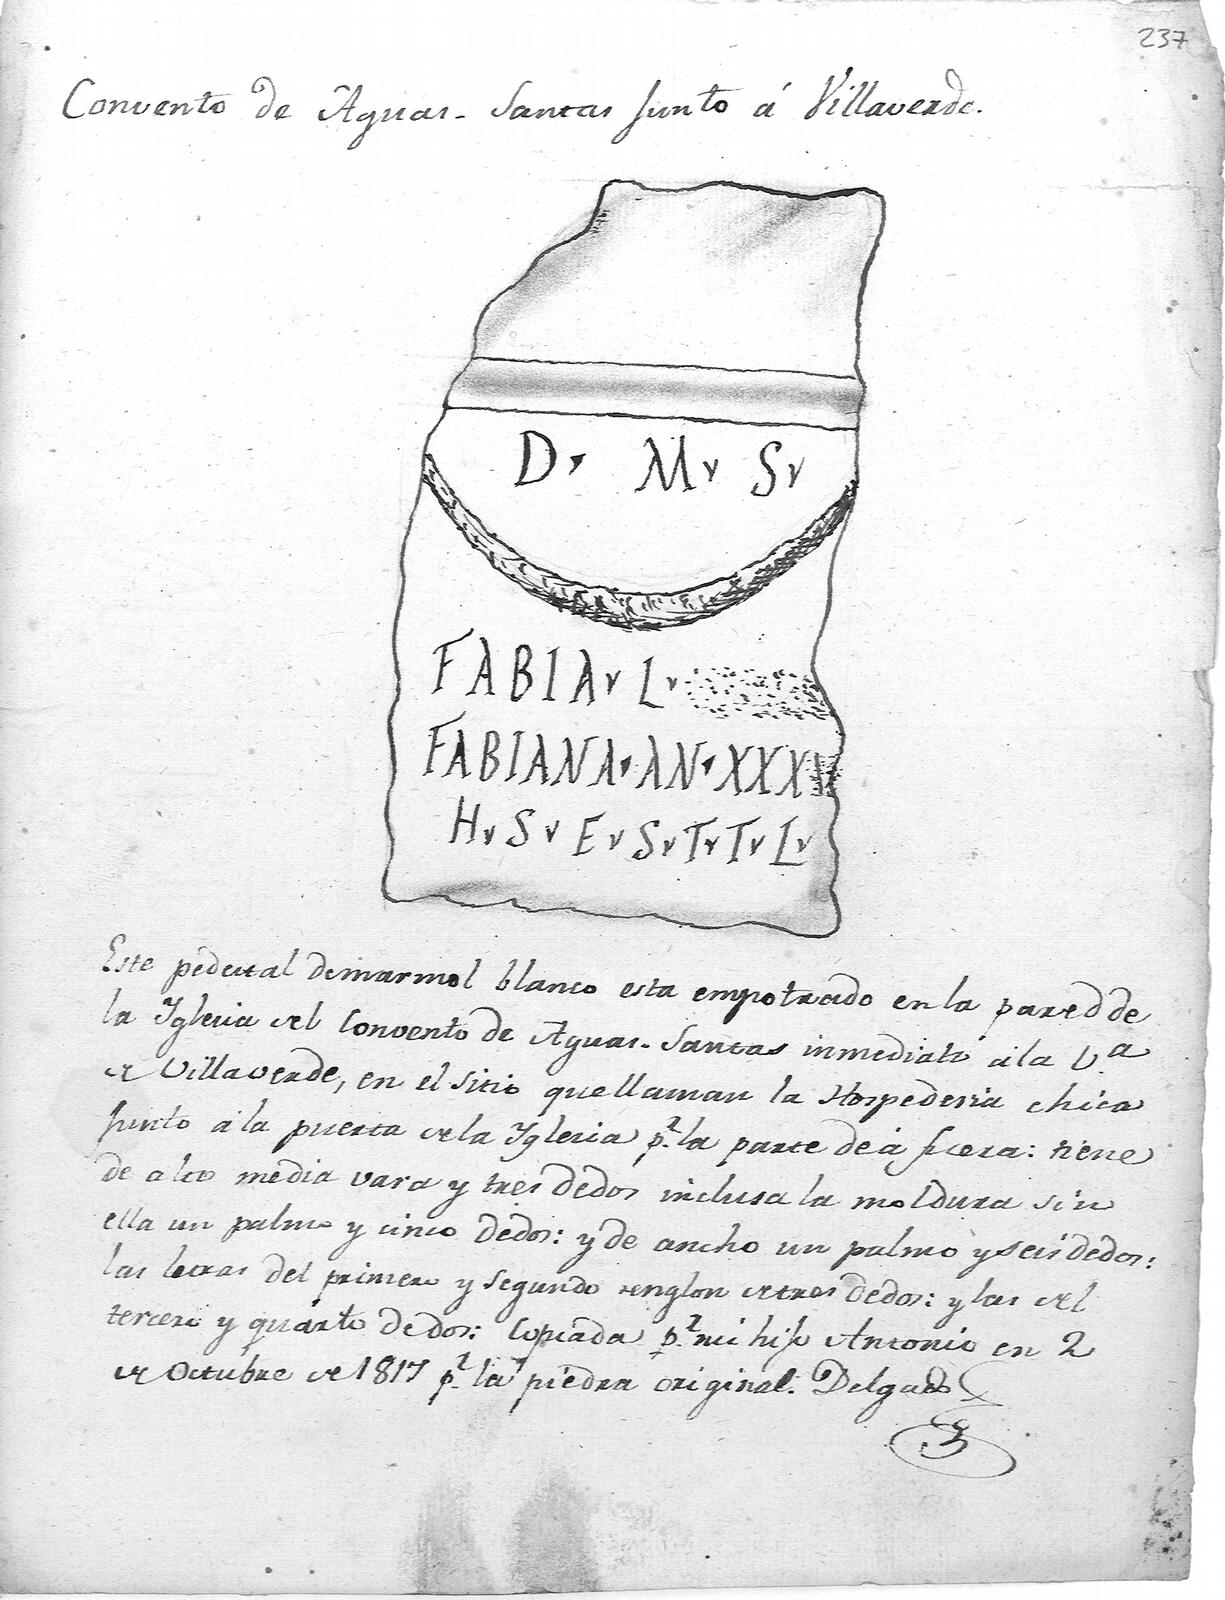 237
Convento de Aguas-Santas junto á Villaverde.
D. M v S v
FABIA v L v
FABIANA · AN · XXX
H v S v E v S v T v T v L v
Este pedestal de marmol blanco esta empotrado en la pared de
la Iglesia del Convento de Aguas-Santas inmediato á la V.ª
de Villaverde, en el sitio que llaman la Hospederia chica
junto á la puerta de la Iglesia p.r la parte de á fuera: tiene
de alto media vara y tres dedos inclusa la moldura sin
ella un palmo y cinco dedos: y de ancho un palmo y seis dedos:
las letras del primero y segundo renglon de tres dedos: y las del
tercero y quarto dedos: Copiada p.r mi hijo Antonio en 2
de Octubre de 1817 p.r la piedra original. Delgado